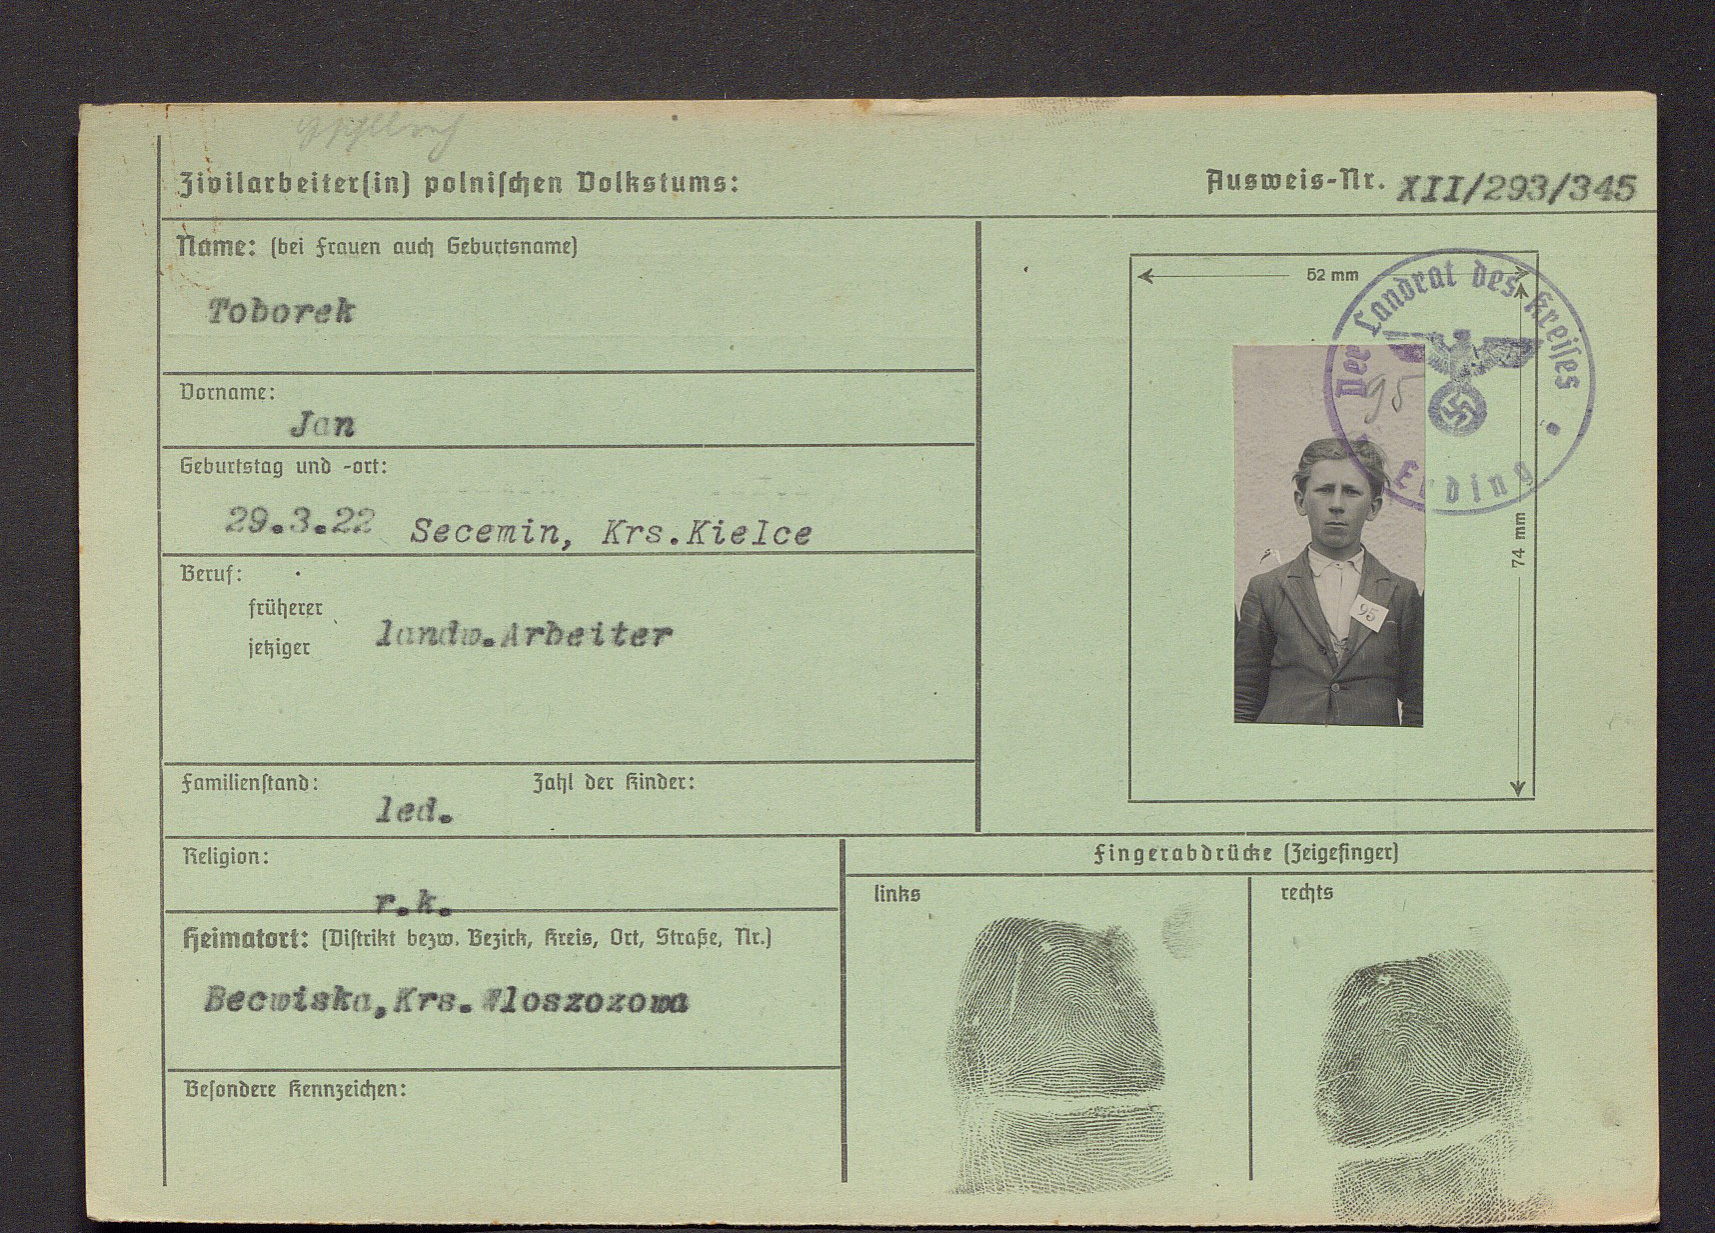 Zivilarbeiter(in) polnischen Volkstums:
Ausweis-Nr. XII/293/345
Name: (bei Frauen auch Geburtsname)
Toborek
Vorname:
Jan
Geburtstag und -ort:
29.3.22 Secemin, Krs.Kielce
Beruf:
früherer
jetziger
landw.Arbeiter
Familienstand:
Zahl der Kinder:
led.
Religion:
r.k.
Heimatort: (Distrikt bezw. Bezirk, Kreis, Ort, Straße, Nr.)
Becwiska,Krs.Wloszozowa
Besondere Kennzeichen:
52 mm
74 mm
Der Landrat des Kreises
Erding
95
95
Fingerabdrücke (Zeigefinger)
links
rechts